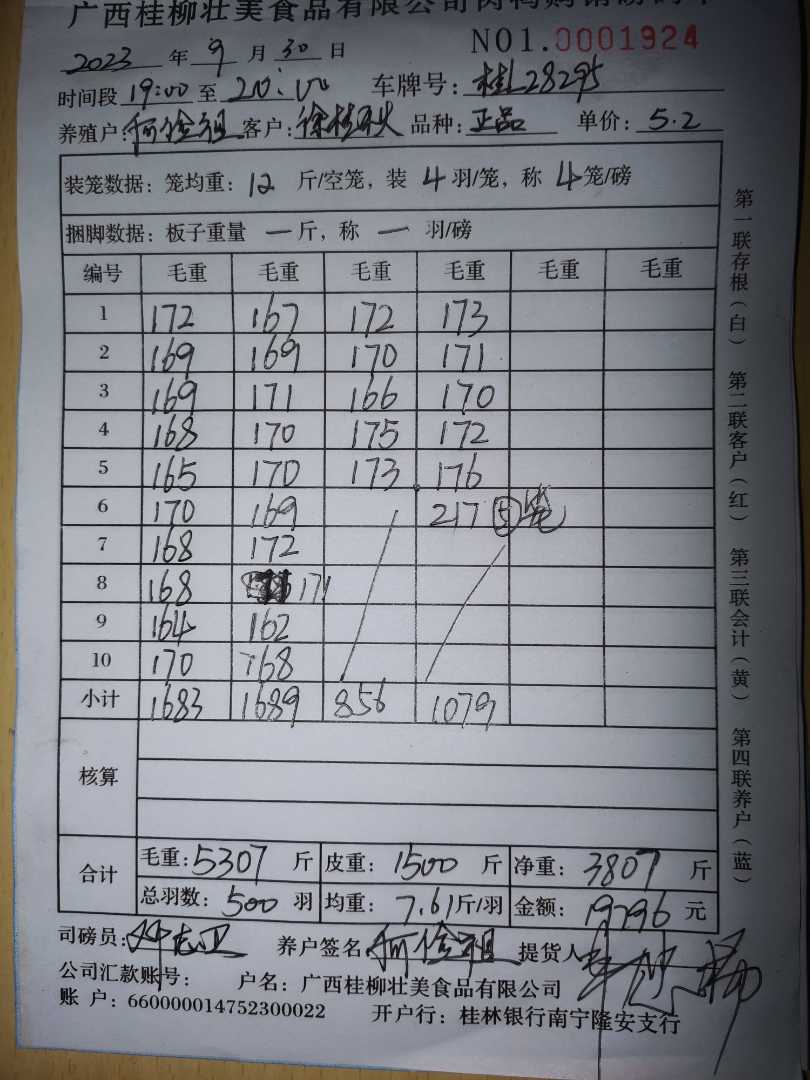 广西桂柳壮美食品有限公司肉鸭购销磅码单
2023 年 9 月 30 日 NO1.0001924
时间段 19:00 至 20:00 车牌号: 桂L28295
养殖户: 何俭祖 客户: 徐桂秋 品种: 正品 单价: 5.2
装笼数据: 笼均重: 12 斤/空笼, 装 4 羽/笼, 称 4 笼/磅
捆脚数据: 板子重量 一 斤, 称 一 羽/磅
编号 毛重 毛重 毛重 毛重 毛重 毛重
1 172 167 172 173
2 169 169 170 171
3 169 171 166 170
4 168 170 175 172
5 165 170 173 176
6 170 169 217 ⑤笼
7 168 172
8 168 171
9 164 162
10 170 168
小计 1683 1689 856 1079
核算
合计 毛重: 5307 斤 皮重: 1500 斤 净重: 3807 斤
总羽数: 500 羽 均重: 7.61 斤/羽 金额: 19796 元
司磅员: 养户签名: 何俭祖 提货人
公司汇款账号: 户名: 广西桂柳壮美食品有限公司
账 户: 660000014752300022 开户行: 桂林银行南宁隆安支行
第一联存根(白) 第二联客户(红) 第三联会计(黄) 第四联养户(蓝)